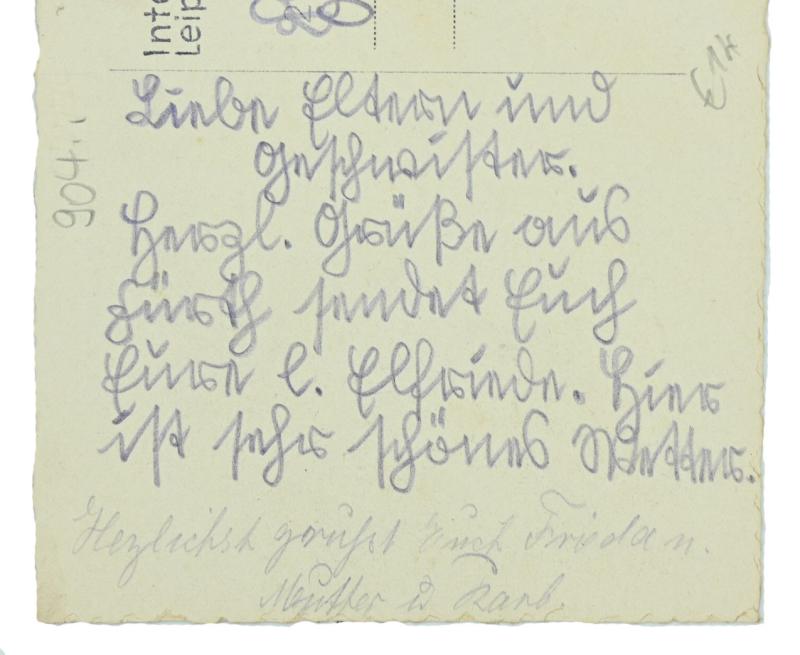 Inte
Leip
E14
904
Liebe Eltern und
Geschwister.
Herzl. Grüße aus
Fürth sendet Euch
Eure l. Elfriede. Hier
ist sehr schönes Wetter.
Herzlichst grüßt Euch Frieda u.
Mutter u